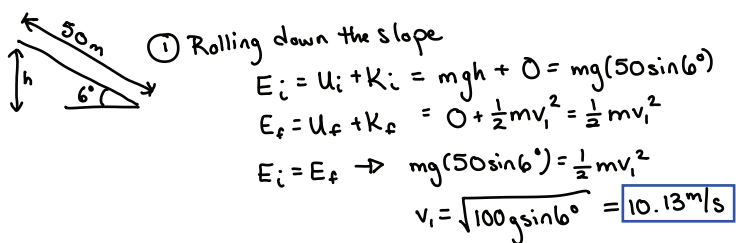 50m
① Rolling down the slope
h
6°
Eᵢ = Uᵢ + Kᵢ = mgh + 0 = mg(50sin6°)
E_f = U_f + K_f = 0 + ½mv₁² = ½mv₁²
Eᵢ = E_f → mg(50sin6°) = ½mv₁²
v₁ = √(100gsin6°) = 10.13 m/s